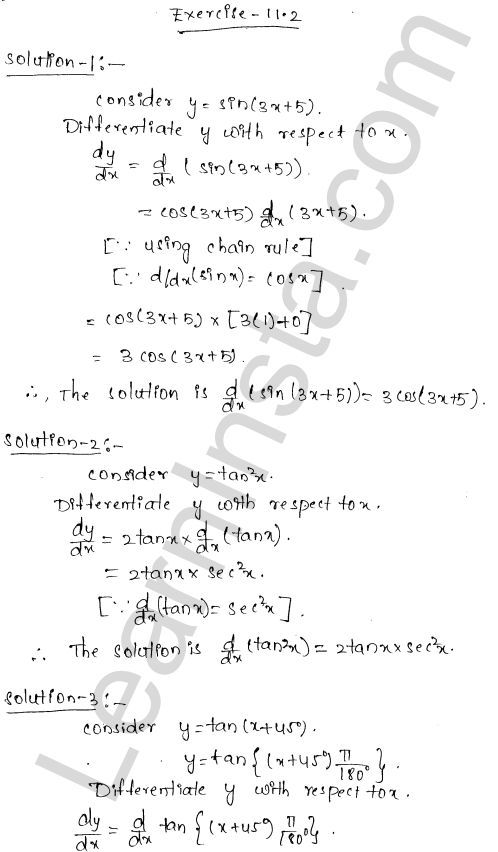 Exercise-11.2
Solution-1:-
consider y = sin(3x+5).
Differentiate y with respect to x.
dy/dx = d/dx (sin(3x+5)).
= cos(3x+5) d/dx (3x+5).
[∵ using chain rule]
[∵ d/dx(sinx) = cosx]
= cos(3x+5) × [3(1)+0]
= 3 cos(3x+5).
∴, The solution is d/dx (sin(3x+5)) = 3 cos(3x+5).
Solution-2:-
consider y = tan²x.
Differentiate y with respect to x.
dy/dx = 2tanx × d/dx (tanx).
= 2tanx × sec²x.
[∵ d/dx (tanx) = sec²x].
∴ The solution is d/dx (tan²x) = 2tanx × sec²x.
Solution-3:-
consider y = tan(x+45°).
y = tan{(x+45°) π/180°}.
Differentiate y with respect to x.
dy/dx = d/dx tan{(x+45°) π/180°}.
LearnInsta.com